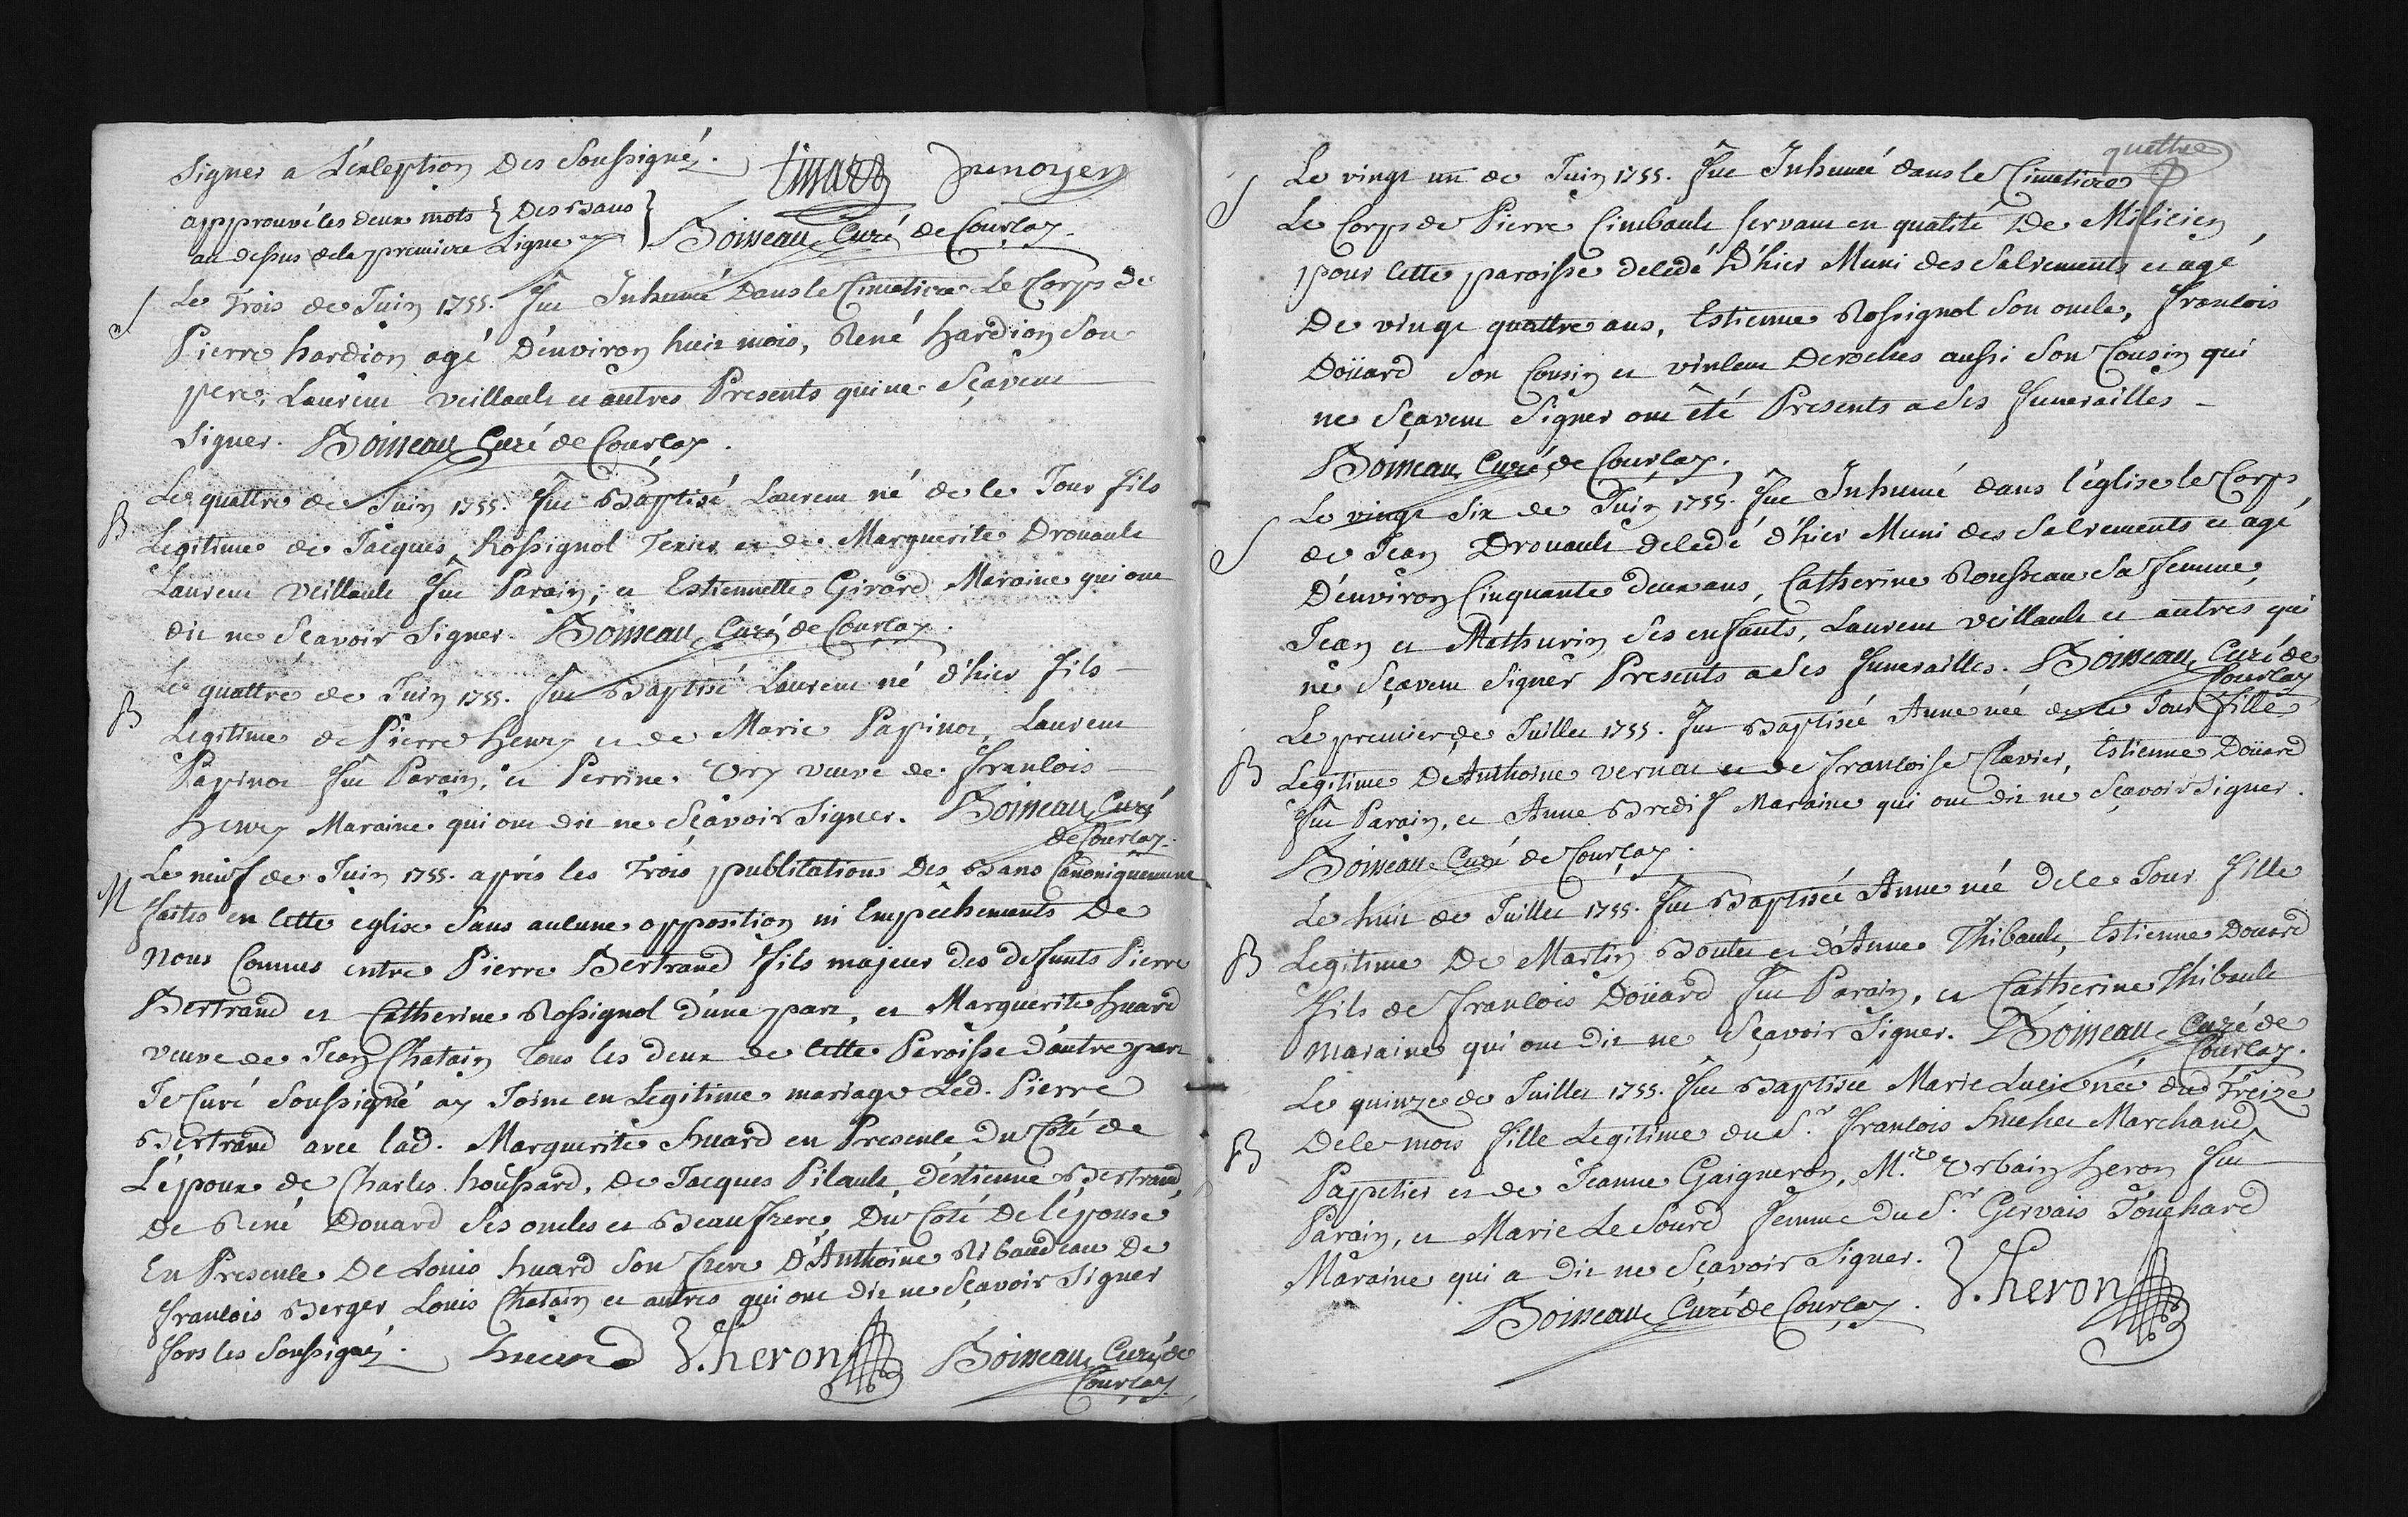 signer a l'exception des soussignéz.
Dunoyer
approuvé les deux mots { des bans }
au dessus de la premiere Ligne
Boisseau Curé de Courçay.
S
Le trois de Juin 1755. fut Inhumé dans le Cimetiere Le Corps de
Pierre hardion agé d'environ huit mois, René hardion son
pere, Laurent veillault et autres Presents qui ne sçavent
signer. Boisseau Curé de Courçay.
B
Le quattre de Juin 1755. fut Baptisé Laurent né de ce Jour fils
Legitime de Jacques Rossignol Texier et de Marguerite Drouault
Laurent veillault fut Parain, et Estiennette Girard Maraine qui ont
dit ne sçavoir signer. Boisseau Curé de Courçay.
B
Le quattre de Juin 1755. fut Baptisé Laurent né d'hier fils
Legitime de Pierre henry et de Marie Papinot, Laurent
Papinot fut Parain, et Perrine Ury veuve de francois
henry Maraine qui ont dit ne sçavoir signer. Boisseau Curé
de Courçay.
M
Le neuf de Juin 1755. aprés les trois publications des Bans Canoniquement
faites en cette eglise sans aucune opposition ni Empechements De
nous Connus entre Pierre Bertrand fils majeur des defunts Pierre
Bertrand et Catherine Rossignol d'une part, et Marguerite huard
veuve de Jean Chatain tous les deux de cette Paroisse d'autre part
Je Curé soussigné ay Joint en Legitime mariage Led. Pierre
Bertrand avec lad. Marguerite huard en Presence du Coté de
L'époux de Charles houssard, de Jacques Pilault, d'estienne Bertrand,
de René Douard ses oncles et Beaufrere, Du Coté De l'épouse
En Presence De Louis huard son frere D'Anthoine Ribaudeau De
francois Berger Louis Chatain et autres qui ont dit ne sçavoir signer
fors les soussignéz. huard V. heron Boisseau Curé de
Courçay
quattre
S
Le vingt un de Juin 1755. fut Inhumé dans le Cimetiere
Le Corps de Pierre Cimbault servant en qualité De Milicien
pour cette paroisse decedé D'hier Muni des sacrements et agé
De vingt quattre ans, Estienne Rossignol son oncle, francois
Doüard son Cousin et vincent Deroches aussi son Cousin qui
ne sçavent signer ont été Presents a ses funerailles
Boisseau Curé de Courçay.
S
Le vingt six de Juin 1755. fut Inhumé dans l'église le Corps
de Jean Drouault decedé d'hier Muni des sacrements et agé
D'environ Cinquante deux ans, Catherine Rousseau sa femme,
Jean et Mathurin ses enfants, Laurent veillault et autres qui
ne sçavent signer Presents a ses funerailles. Boisseau Curé de
Courçay
B
Le premier de Juillet 1755. fut Baptisée Anne née de ce Jour fille
Legitime De Anthoine vernat et de francoise Clavier, Estienne Doüard
fut Parain, et Anne Bredif Maraine qui ont dit ne sçavoir signer.
Boisseau Curé de Courçay.
B
Le huit de Juillet 1755. fut Baptisée Anne née de ce Jour fille
Legitime De Martin Boutet et d'Anne Thibault, Estienne Douard
fils de francois Doüard fut Parain, et Catherine Thibault
maraine qui ont dit ne sçavoir signer. Boisseau Curé de
Courçay.
B
Le quinze de Juillet 1755. fut Baptisée Marie Lucie née du treize
De ce mois fille Legitime du Sr. francois huchet Marchand
Papetier et de Jeanne Gaigneron, M.re Urbain heron fut
Parain, et Marie Le Sourd femme du Sr. Gervais Touchard
Maraine qui a dit ne sçavoir signer. V. heron
Boisseau Curé de Courçay.